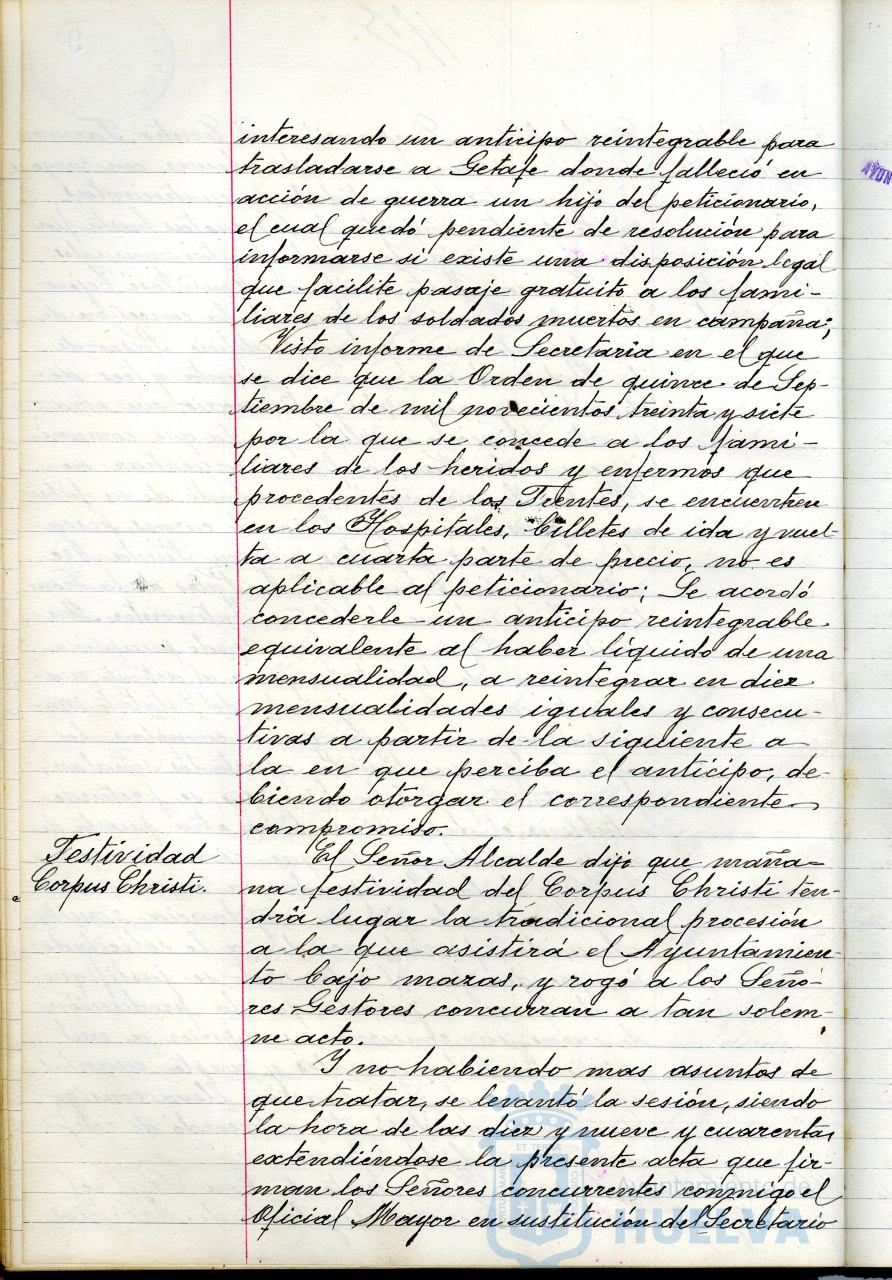 interesando un anticipo reintegrable para
trasladarse a Getafe donde falleció en
acción de guerra un hijo del peticionario,
el cual quedó pendiente de resolución para
informarse si existe una disposición legal
que facilite pasaje gratuito a los fami-
liares de los soldados muertos en campaña;
Visto informe de Secretaria en el que
se dice que la Orden de quince de Sep-
tiembre de mil novecientos treinta y siete
por la que se concede a los fami-
liares de los heridos y enfermos que
procedentes de los Frentes, se encuentren
en los Hospitales, billetes de ida y vuel-
ta a cuarta parte de precio, no es
aplicable al peticionario; Se acordó
concederle un anticipo reintegrable
equivalente al haber líquido de una
mensualidad, a reintegrar en diez
mensualidades iguales y consecu-
tivas a partir de la siguiente a
la en que perciba el anticipo, de-
biendo otorgar el correspondiente
compromiso.
Festividad
Corpus Christi.
El Señor Alcalde dijo que maña-
na festividad del Corpus Christi ten-
drá lugar la tradicional procesión
a la que asistirá el Ayuntamien-
to bajo mazas, y rogó a los Seño-
res Gestores concurran a tan solem-
ne acto.
Y no habiendo mas asuntos de
que tratar, se levantó la sesión, siendo
la hora de las diez y nueve y cuarenta,
extendiéndose la presente acta que fir-
man los Señores concurrentes conmigo el
Oficial Mayor en sustitución del Secretario
AYUN
Ayuntamiento de
HUELVA